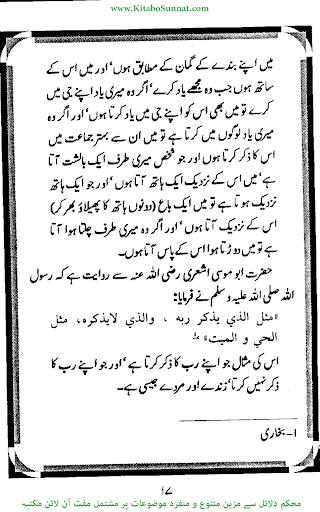 www.KitaboSunnat.com
میں اپنے بندے کے گمان کے مطابق ہوں' اور میں اس کے
ساتھ ہوں جب وہ مجھے یاد کرے' اگر وہ میری یاد اپنے جی میں
کرے تو میں بھی اس کو اپنے جی میں یاد کرتا ہوں' اور اگر وہ
میری یاد لوگوں میں کرتا ہے تو میں ان سے بہتر جماعت میں
اس کا ذکر کرتا ہوں اور جو شخص میری طرف ایک بالشت آتا
ہے' میں اس کے نزدیک ایک ہاتھ آتا ہوں' اور جو ایک ہاتھ
نزدیک ہوتا ہے تو میں ایک باع (دونوں ہاتھ کا پھیلاؤ بھر کر)
اس کے نزدیک آتا ہوں' اور اگر وہ میری طرف چلتا ہوا آتا
ہے تو میں دوڑتا ہوا اس کے پاس آتا ہوں۔
حضرت ابو موسی اشعری رضی اللہ عنہ سے روایت ہے کہ رسول
اللہ صلی اللہ علیہ و سلم نے فرمایا:
«مثل الذي يذكر ربه ، والذي لايذكره، مثل
الحي و الميت»
اس کی مثال جو اپنے رب کا ذکر کرتا ہے' اور جو اپنے رب کا
ذکر نہیں کرتا' زندے اور مردے جیسی ہے۔
۱۔ بخاری
۱۷
محکم دلائل سے مزین متنوع و منفرد موضوعات پر مشتمل مفت آن لائن مکتبہ